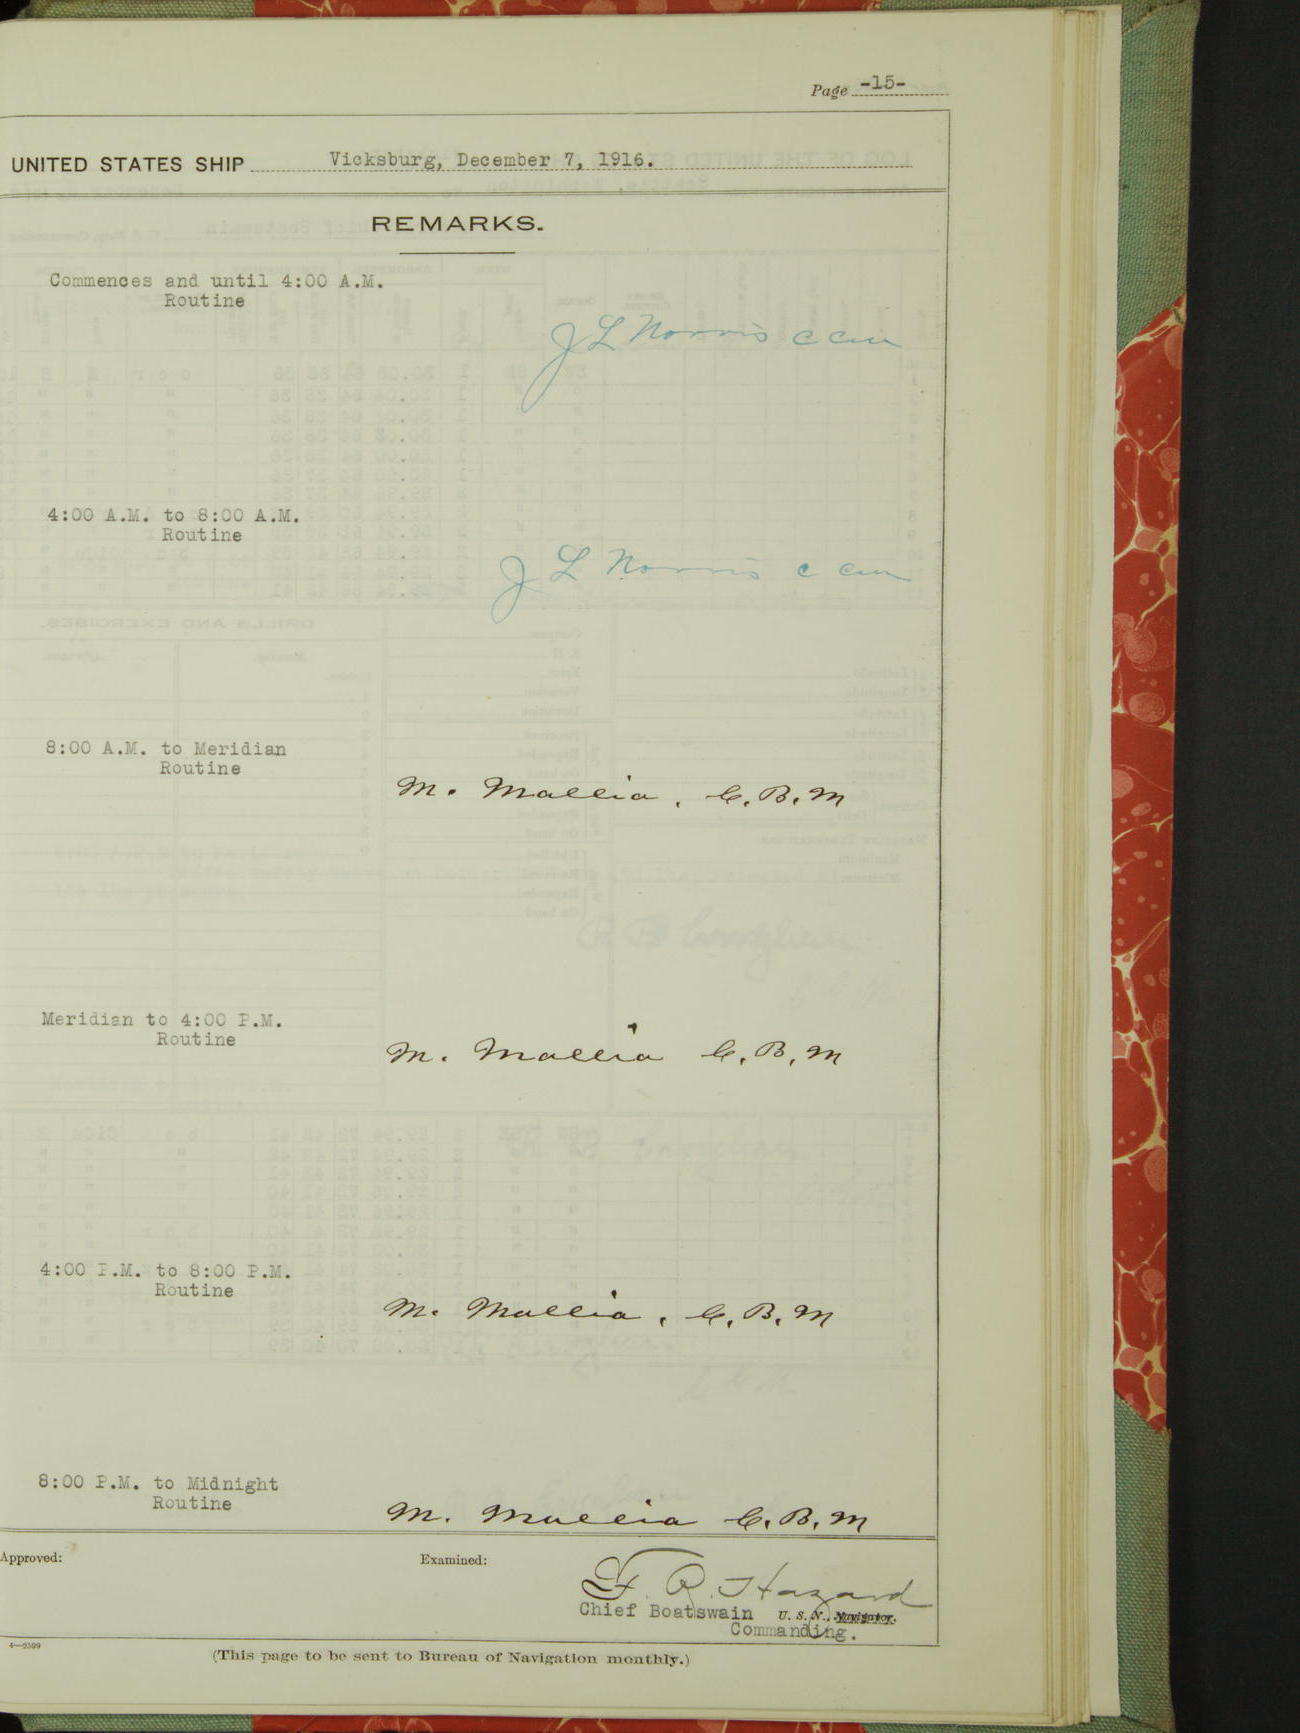 Page -15-
UNITED STATES SHIP Vicksburg, December 7, 1916.
REMARKS.
Commences and until 4:00 A.M.
Routine
J L Norris
4:00 A.M. to 8:00 A.M.
Routine
J L Norris
8:00 A.M. to Meridian
Routine
M. Mallia, C.B.M
Meridian to 4:00 P.M.
Routine
M. Mallia C.B.M
4:00 P.M. to 8:00 P.M.
Routine
M. Mallia, C.B.M
8:00 P.M. to Midnight
Routine
M. Mallia C.B.M
Approved: Examined:
F. R. Hazard
Chief Boatswain U. S. N., Navigator.
Commanding.
4—2599
(This page to be sent to Bureau of Navigation monthly.)